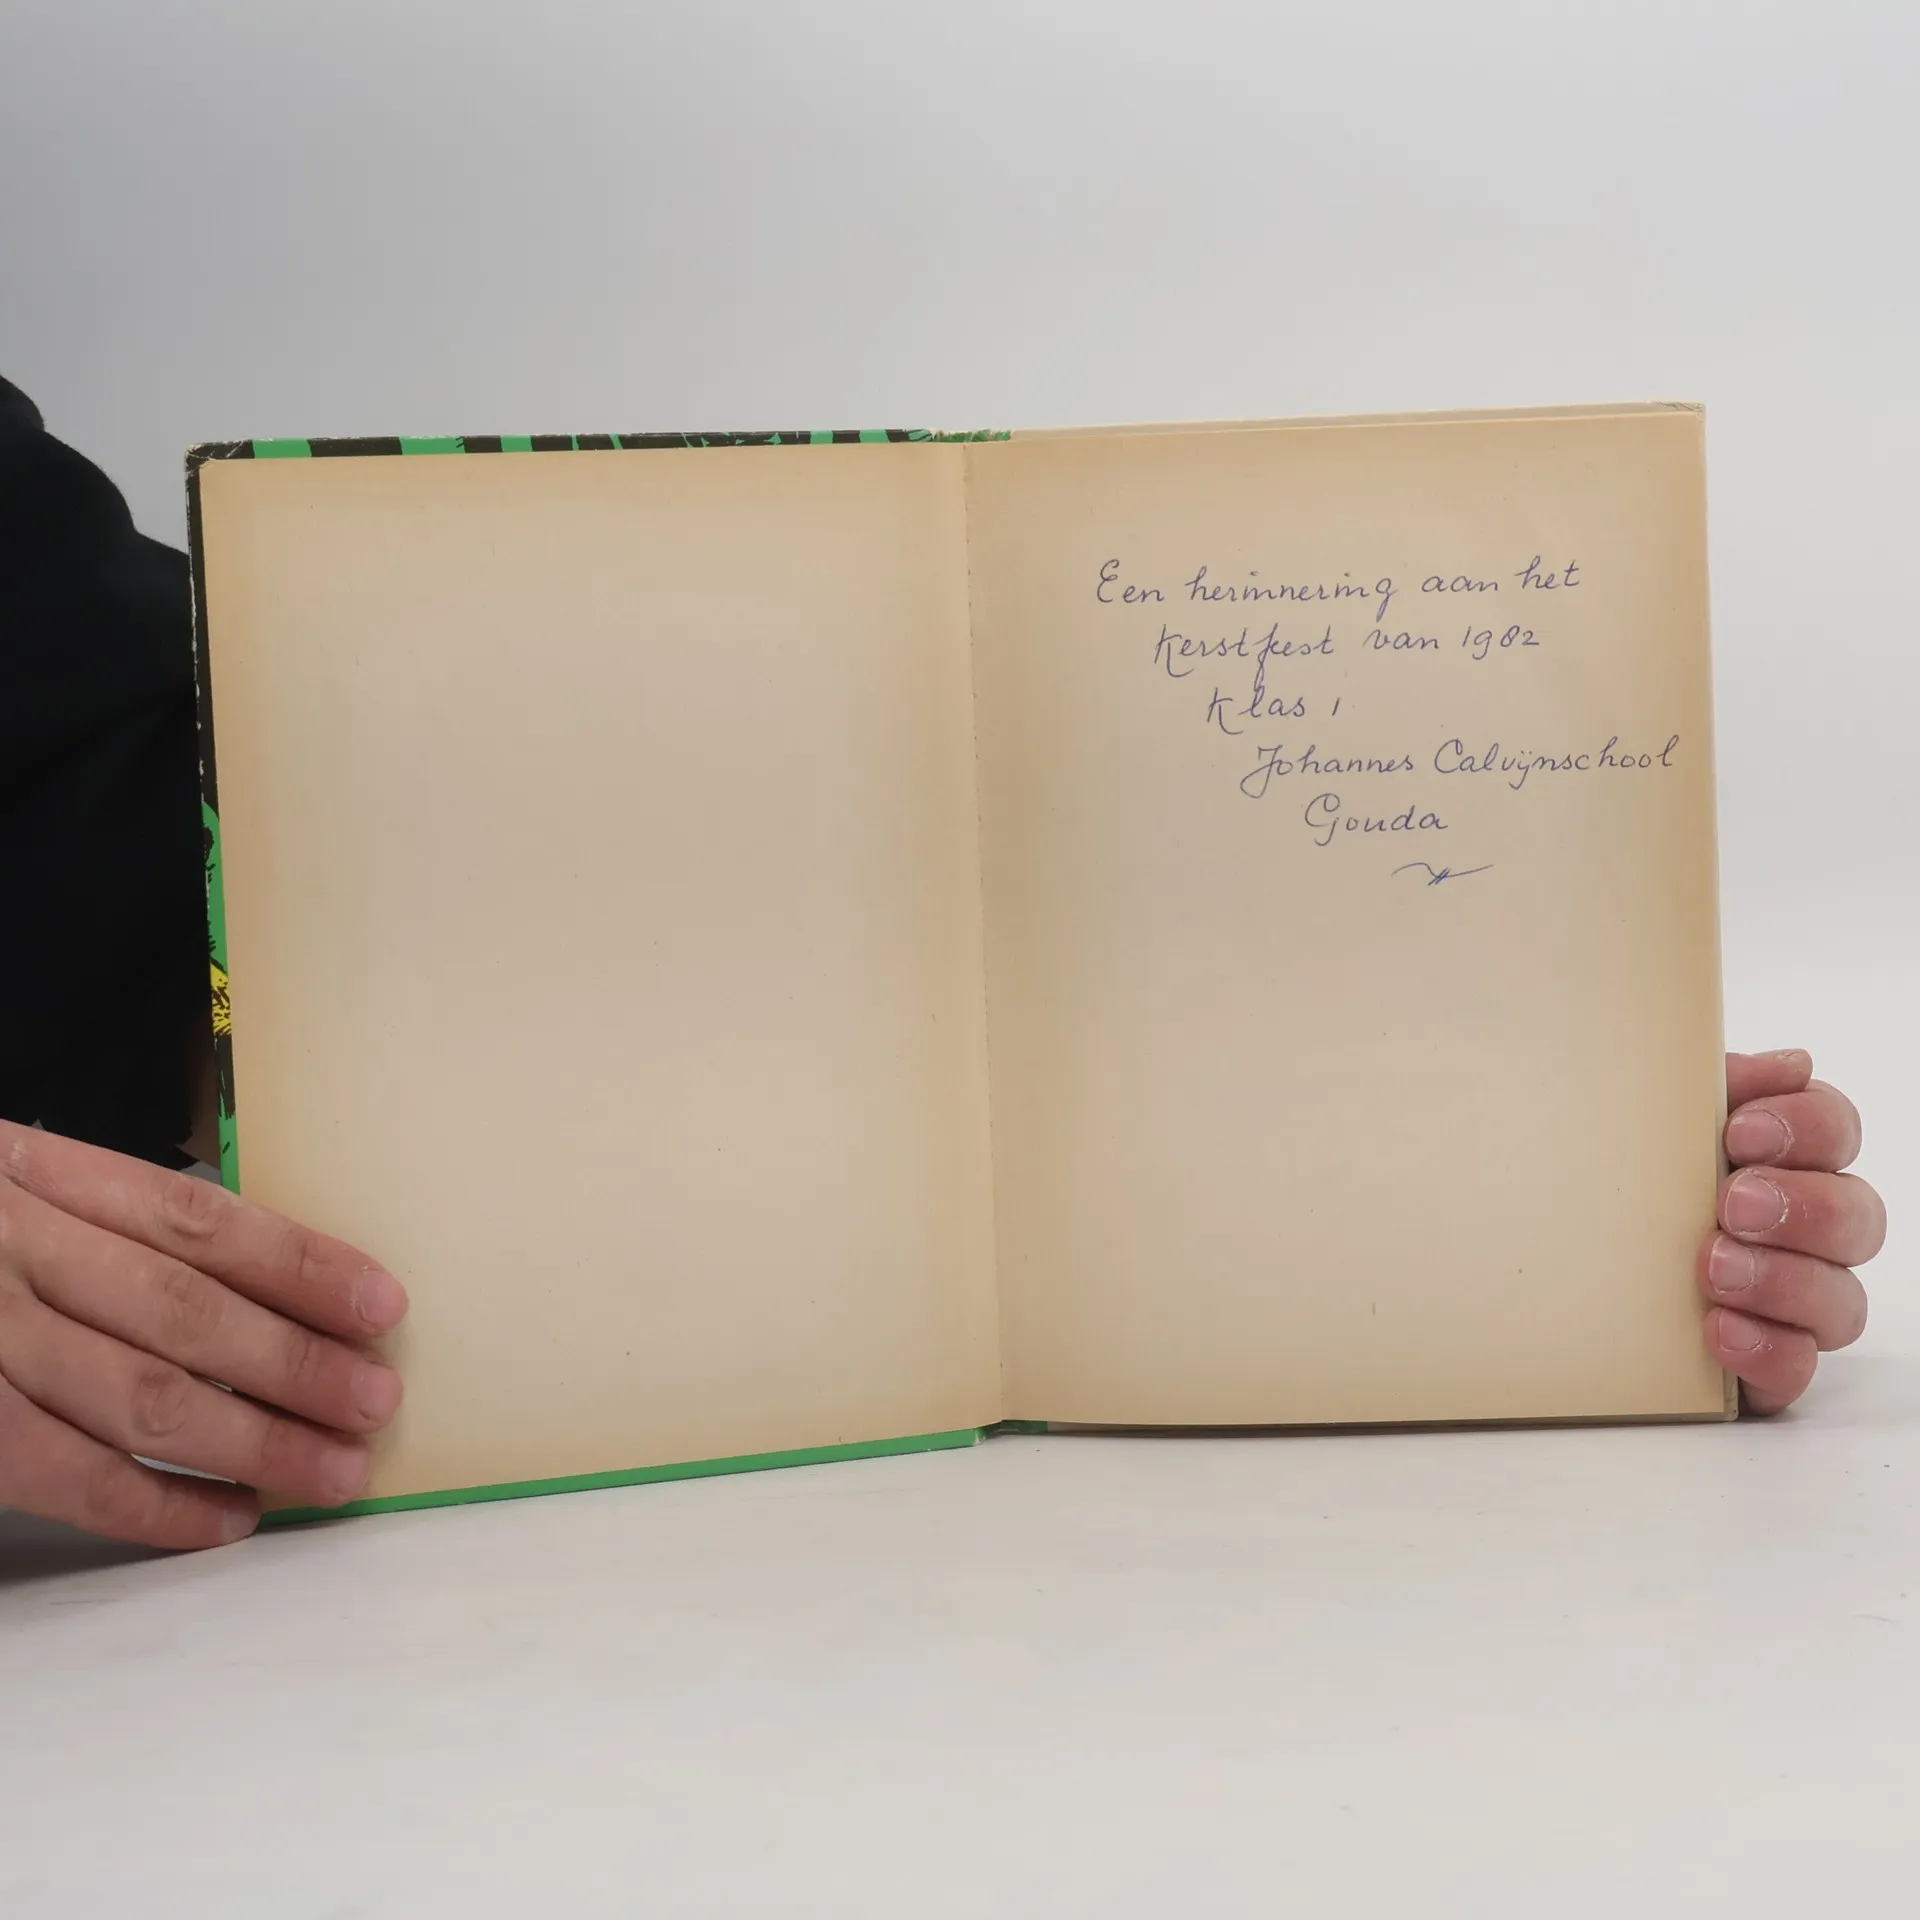 Een herinnering aan het
Kerstfeest van 1982
Klas 1
Johannes Calvijnschool
Gouda